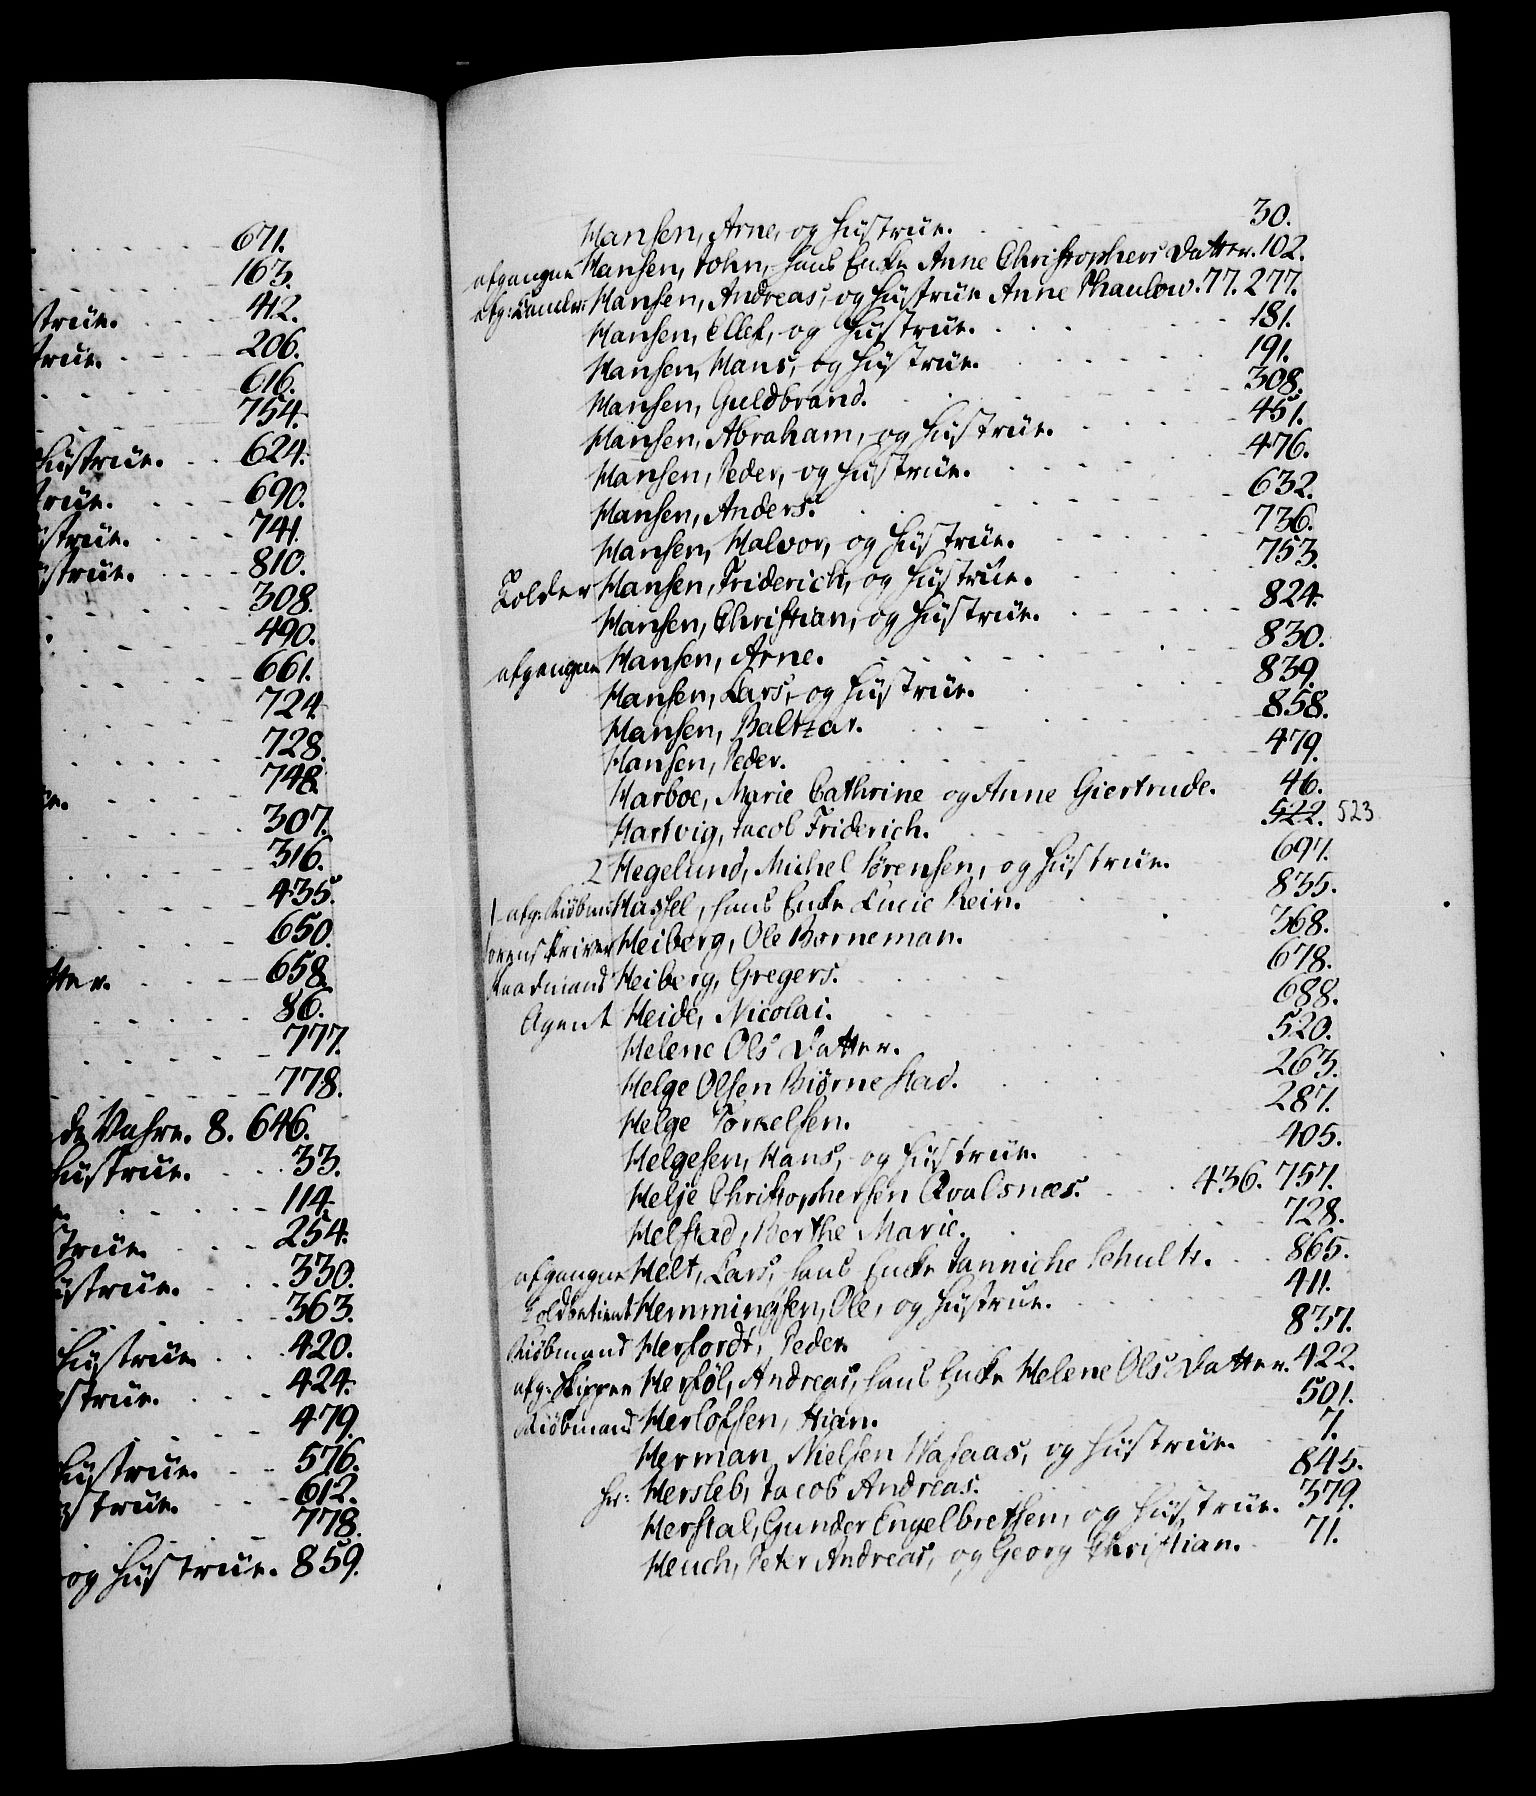 671.
163.
strue. 412.
true. 206.
616.
754.
Hustrue. 624.
true. 690.
ustrue. 741.
ustrue. 810.
308.
490.
661.
724.
728.
748.
307.
316.
435.
650.
tter. 658.
86.
777.
778.
de Vahre. 8. 646.
Hustrue. 33.
114.
strue. 254.
ustrue. 330.
363.
Hustrue 420.
strue. 424.
479.
Hustrue. 576.
strue. 612.
778.
og Hustrue. 859.
Hansen, Arne, og Hustrue. 30.
afgangne Hansen, John, hans Enke Anne Christophers Datter. 102.
afg: Hansen, Andreas, og Hustrue Anne Thaulow. 77. 277.
Hansen, Ellef, og Hustrue. 181.
Hansen, Hans, og Hustrue. 191.
Hansen, Guldbrand. 308.
Hansen, Abraham, og Hustrue. 451.
Hansen, Peder, og Hustrue. 476.
Hansen, Anders. 632.
Hansen, Halvor, og Hustrue. 736.
Tolder Hansen, Friderich, og Hustrue. 753.
Hansen, Christian, og Hustrue. 824.
afgangne Hansen, Arne. 830.
Hansen, Lars, og Hustrue. 839.
Hansen, Baltzar. 858.
Hansen, Peder. 479.
Harboe, Marie Cathrine og Anne Giertrude. 46.
Hartvig, Jacob Friderich. 522. 523
2 Hegelund, Michel Sørensen, og Hustrue. 697.
1 afg: Kiøbm: Hassel, hans Enke Lucie Rein. 835.
Sorenskriver Heiberg, Ole Borneman. 368.
Raadmand Heiberg, Gregers. 678.
Agent Heide, Nicolai. 688.
Helene Ols Datter. 520.
Helge Olsen Biørnestad. 263.
Helge Torkelsen. 287.
Helgesen, Hans, og Hustrue. 405.
Helje Christophersen Qvalsnæs. 436. 757.
Helstad, Berthe Marie. 728.
afgangne Helt, Lars, hans Enke Janniche Schult. 865.
Toldbetient Hemmingsen, Ole, og Hustrue. 411.
Kiøbmand Herfordt, Peder. 837.
afg: Skipper Herføl, Andreas, hans Enke Helene Ols Datter. 422.
Kiøbmand Herlofsen, Stian. 501.
Herman Nielsen Hasaas, og Hustrue. 7.
Hr: Hersleb, Jacob Andreas. 845.
Herstal, Gunder Engelbrethsen, og Hustrue. 379.
Heuch, Peter Andreas, og Georg Christian. 71.